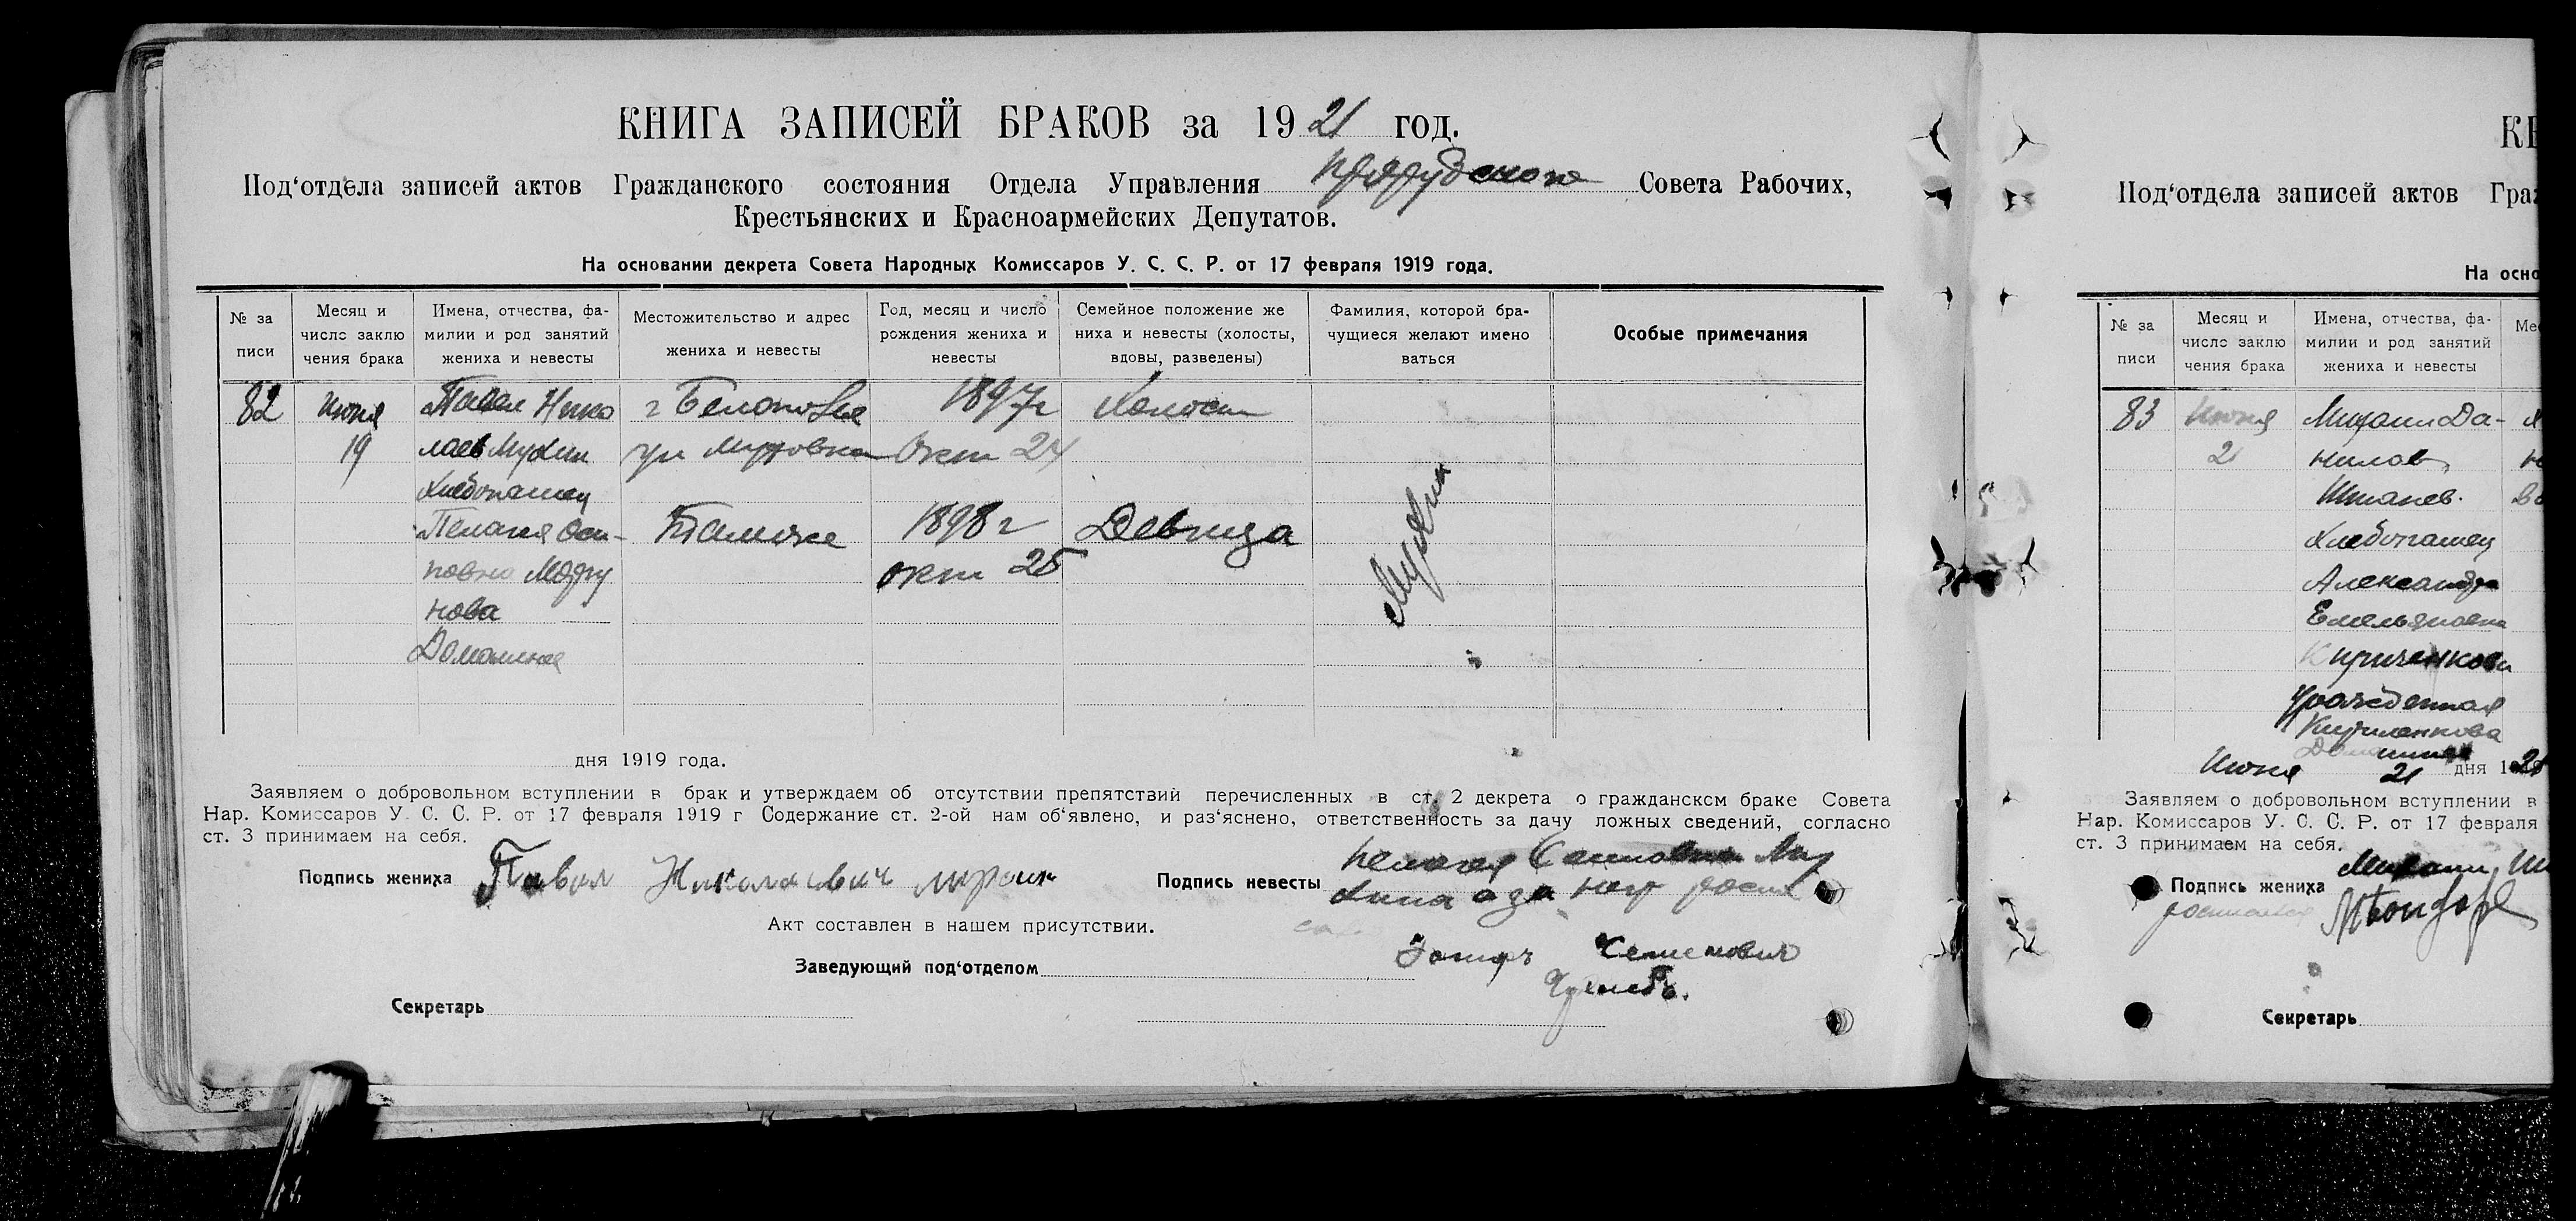 КНИГА ЗАПИСЕЙ БРАКОВ за 1921 год.
Под‘отдела записей актов Гражданского состояния Отдела Управления Совета Рабочих,
Крестьянских и Красноармейских Депутатов.
На основании декрета Совета Народных Комиссаров У. С. С. Р. от 17 февраля 1919 года.
№ за писи
Месяц и число заклю чения брака
Имена, отчества, фа- милии и род занятий жениха и невесты
Местожительство и адрес жениха и невесты
Год, месяц и число рождения жениха и невесты
Семейное положение же ниха и невесты (холосты, вдовы, разведены)
Фамилия, которой бра- чущиеся желают имено ваться
Особые примечания
82 Июня Павел Нико г Беловодье 1897г Холост
19 лаев Мухин ул Окт 24
Хлебопашец
Пелагея Оси- Таможе 1898 г Девица
повна окт 25
нова
Домашняя
Мухин
дня 1919 года.
Заявляем о добровольном вступлении в брак и утверждаем об отсутствии препятствий перечисленных в ст. 2 декрета о гражданском браке Совета
Нар. Комиссаров У. С. С. Р. от 17 февраля 1919 г Содержание ст. 2-ой нам об‘явлено, и раз‘яснено, ответственность за дачу ложных сведений, согласно
ст. 3 принимаем на себя.
Подпись жениха Павел Николаевич
Подпись невесты Пелагея
Акт составлен в нашем присутствии.
Заведующий под‘отделом Семенович
Секретарь
КН
Под‘отдела записей актов Граж
На осно
№ за писи
Месяц и число заклю чения брака
Имена, отчества, фа- милии и род занятий жениха и невесты
Мес
83 Июня Михаил Да-
21 нилов
Хлебопашец
Александра
Емельяновна
Кириченкова
Урожденная
Кириченкова
Домашняя
Июня 21 дня 1921
Заявляем о добровольном вступлении в
Нар. Комиссаров У. С. С. Р. от 17 февраля
ст. 3 принимаем на себя.
Подпись жениха Михаил
Секретарь